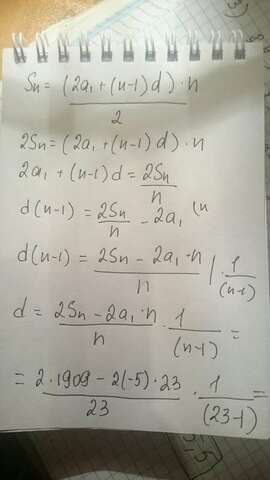 Sn = (2a₁ + (n-1)d) · n / 2
2Sn = (2a₁ + (n-1)d) · n
2a₁ + (n-1)d = 2Sn / n
d(n-1) = 2Sn / n - 2a₁ (n
d(n-1) = 2Sn - 2a₁ · n / n | · 1 / (n-1)
d = 2Sn - 2a₁ · n / n · 1 / (n-1) =
= 2 · 1909 - 2(-5) · 23 / 23 · 1 / (23-1) =